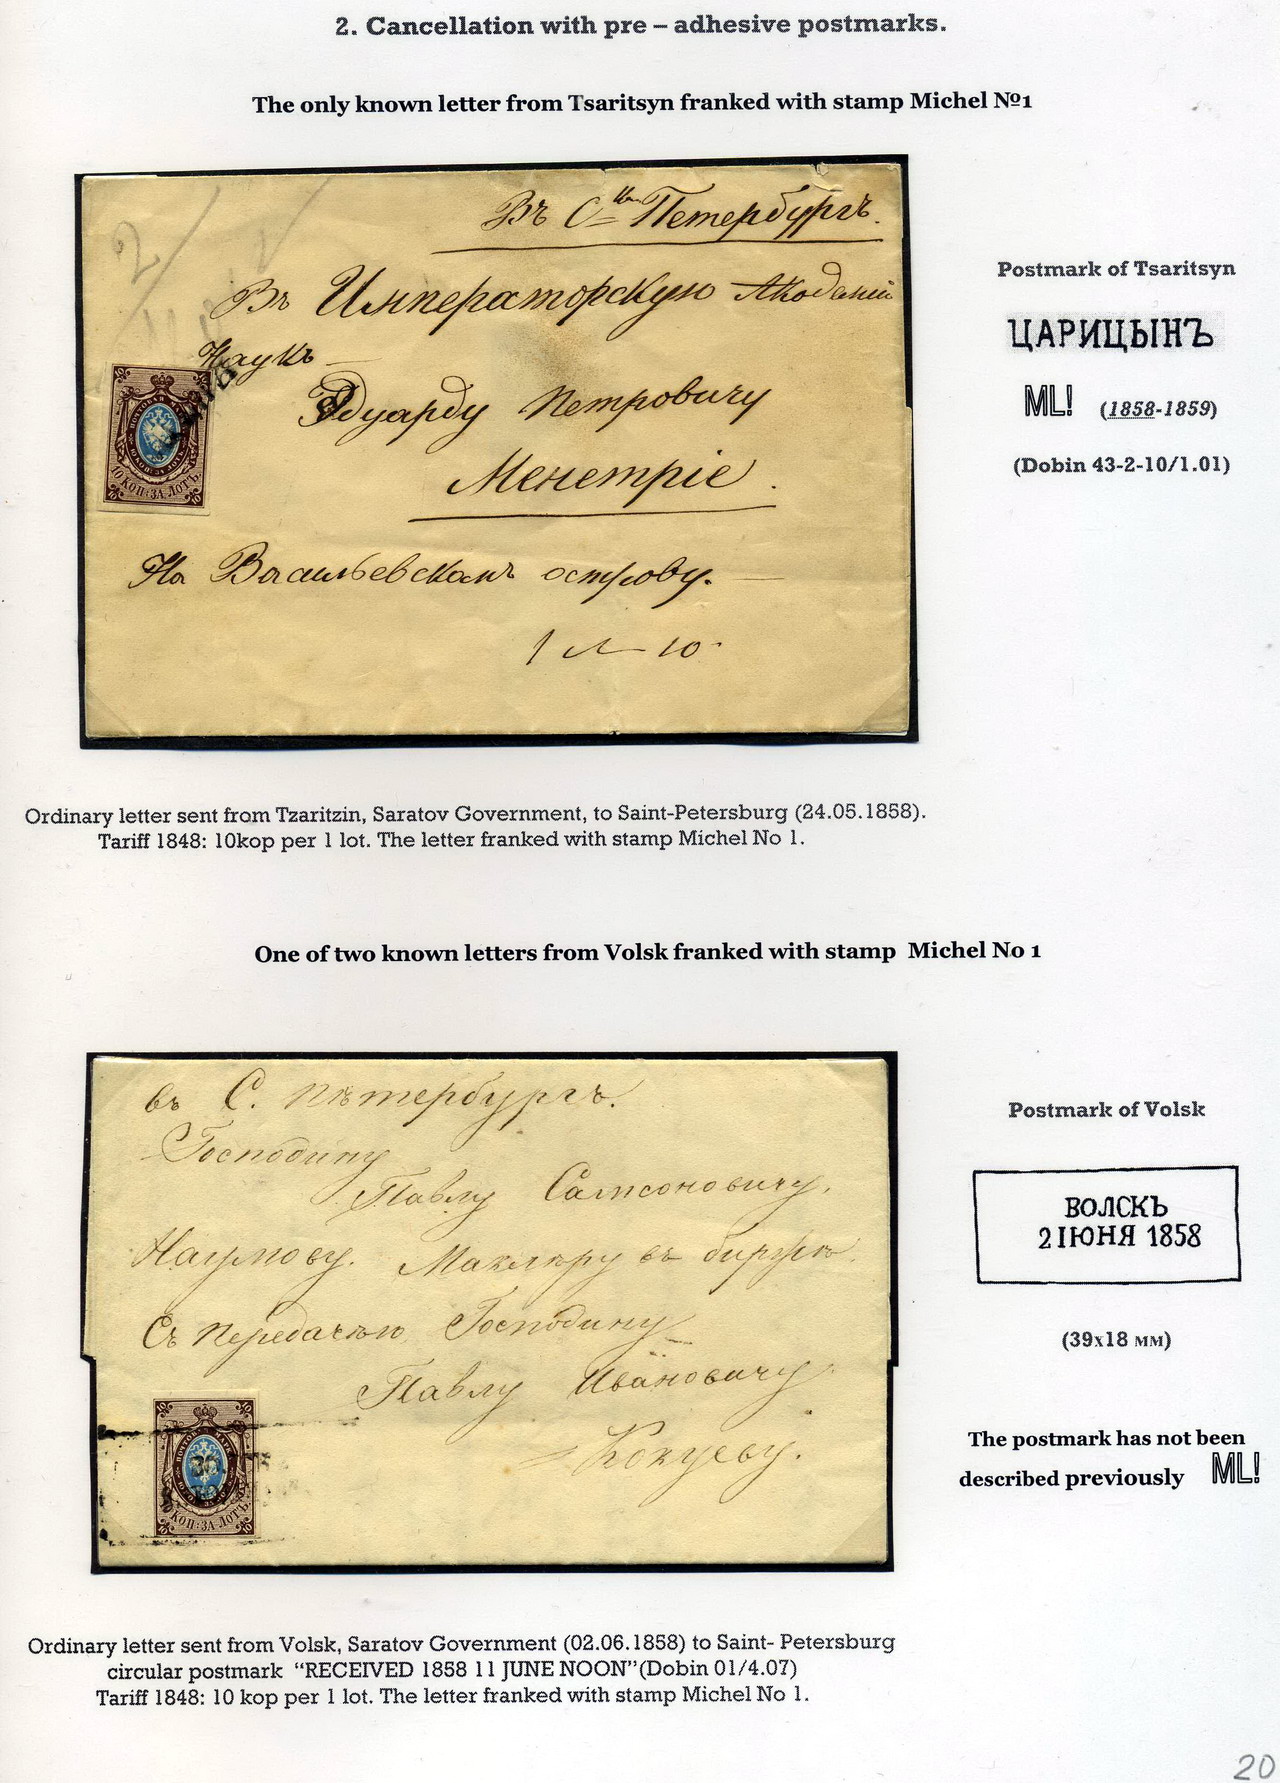 2. Cancellation with pre – adhesive postmarks.
The only known letter from Tsaritsyn franked with stamp Michel №1
Въ С Петербургъ.
Въ Императорскую Академiи
Наукъ
Эдуарду Петровичу
Менетрiе.
На Васильевскомъ острову.
1 л 10
ПОЧТОВАЯ МАРКА
10 КОП: ЗА ЛОТЪ.
Postmark of Tsaritsyn
ЦАРИЦЫНЪ
ML! (1858-1859)
(Dobin 43-2-10/1.01)
Ordinary letter sent from Tzaritzin, Saratov Government, to Saint-Petersburg (24.05.1858).
Tariff 1848: 10kop per 1 lot. The letter franked with stamp Michel No 1.
One of two known letters from Volsk franked with stamp Michel No 1
въ С. Пѣтербургъ.
Господину
Павлу Самсоновичу
Наумову. Маклеру въ биржѣ.
Съ передачѣю Господину
Павлу Ивановичу
Кокуеву.
10 КОП: ЗА ЛОТЪ.
Postmark of Volsk
ВОЛСКЪ
2 IЮНЯ 1858
(39x18 мм)
The postmark has not been
described previously ML!
Ordinary letter sent from Volsk, Saratov Government (02.06.1858) to Saint- Petersburg
circular postmark “RECEIVED 1858 11 JUNE NOON”(Dobin 01/4.07)
Tariff 1848: 10 kop per 1 lot. The letter franked with stamp Michel No 1.
20